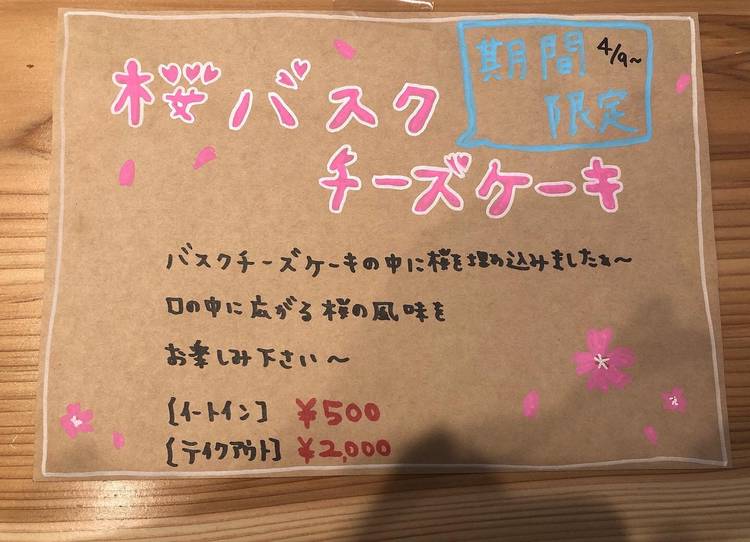 桜バスク
チーズケーキ
期間
4/9~
限定
バスクチーズケーキの中に桜を埋め込みましたぁ〜
口の中に広がる桜の風味を
お楽しみ下さい〜
[イートイン] ¥500
[テイクアウト] ¥2,000